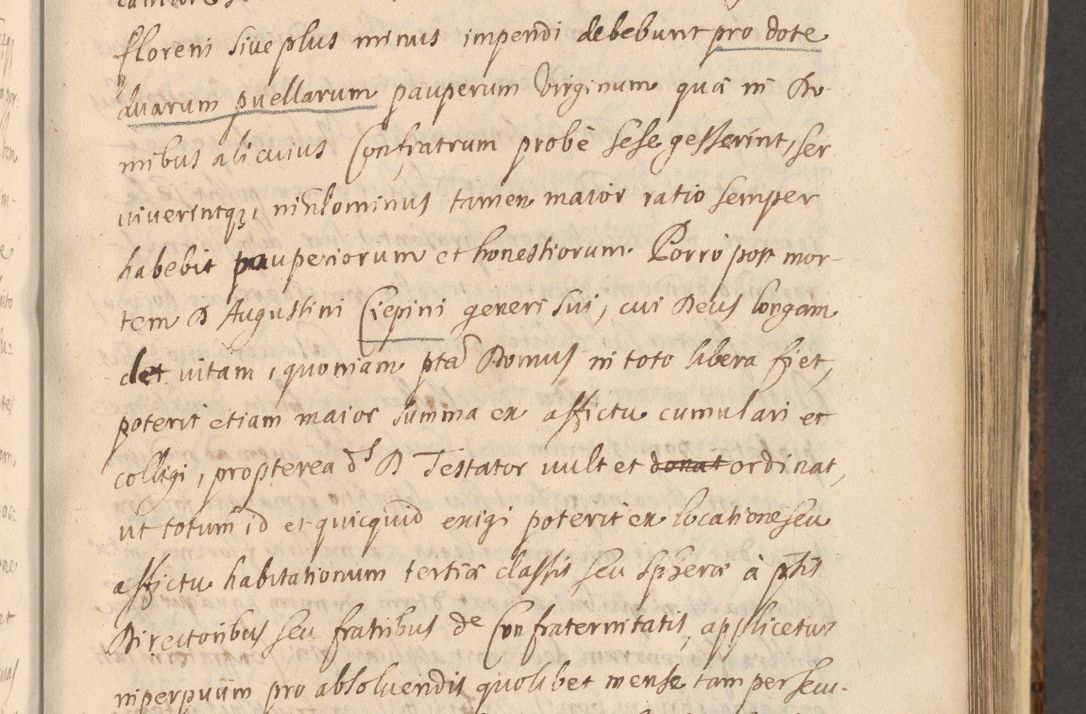 floreni sive plus minus impendi debebunt pro dote
duarum puellarum pauperum Virginum quæ in Do-
mibus alicuius Confratrum probè sese gesserint, ser
viverintqz, nihilominus tamen maior ratio semper
habebit pauperiorum et honestiorum. Porrò post mor-
tem D Augustini Ciepini generi sui, cui Deus longam
det vitam, quoniam pta Domus in toto libera fiet,
poterit etiam maior summa ex affictu cumulari et
colligi, propterea ds D Testator vult et donat ordinat,
ut totum id et quicquid exigi poterit ex locatione seu
affictu habitationum tertiæ classis seu spheræ à ptis
Directoribus seu fratribus de Confraternitatis, applicetur
in perpuum pro absolvendis quolibet mense tam per secu-